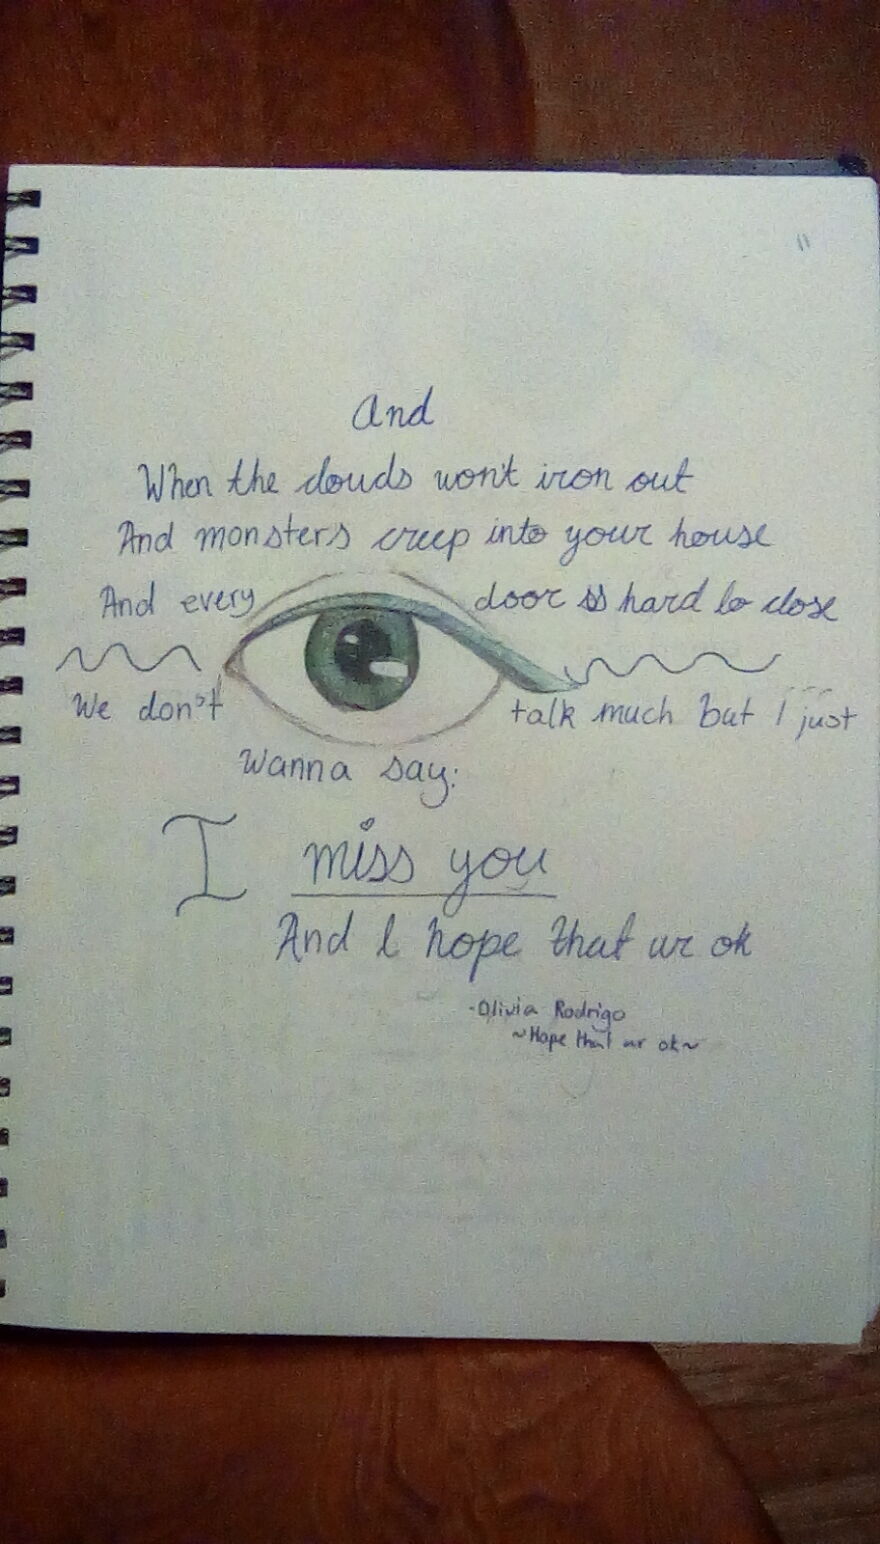 And
When the clouds won't iron out
And monsters creep into your house
And every door is hard to close
We don't talk much but I just
Wanna say:
I miss you
And I hope that ur ok
-Olivia Rodrigo
~Hope that ur ok~